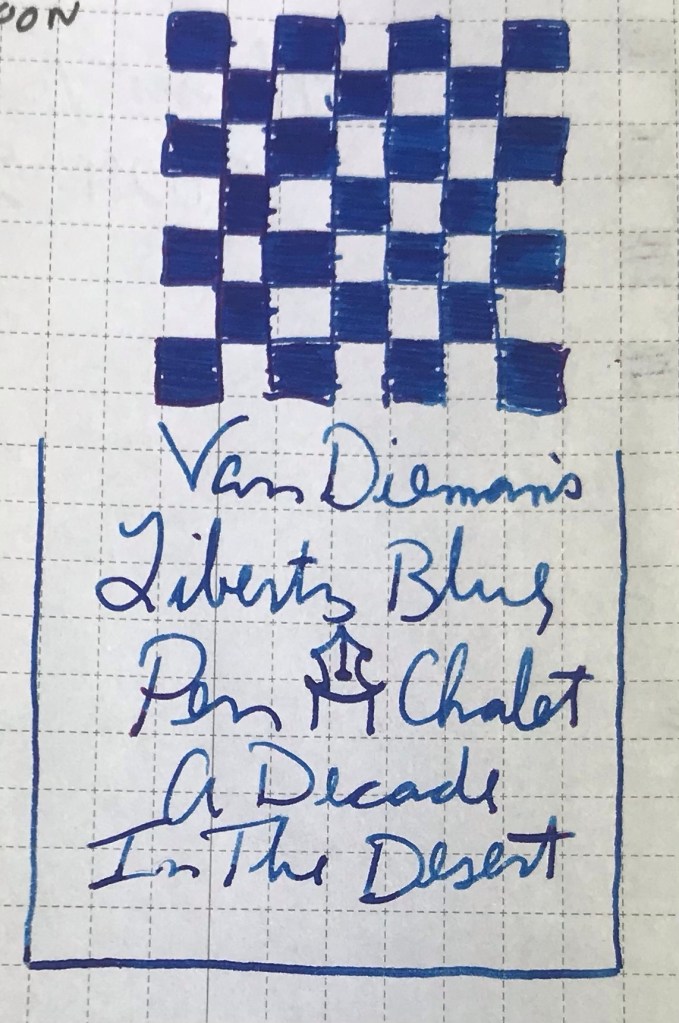 OON
Van Dieman's
Liberty Blue
Pen Chalet
A Decade
In The Desert